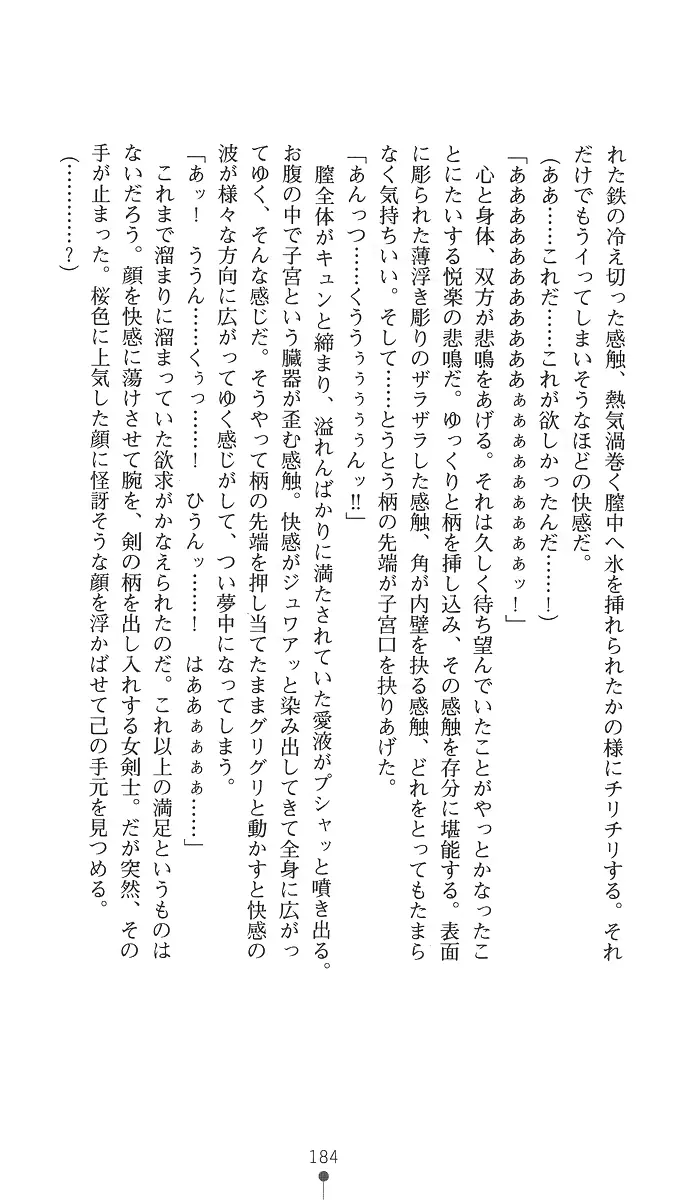 れた鉄の冷え切った感触、熱気渦巻く膣中へ氷を挿れられたかの様にチリチリする。それ
だけでもうイってしまいそうなほどの快感だ。
(ああ……これだ……これが欲しかったんだ……!)
「あああああああああああぁぁぁぁぁぁぁぁッ!」
心と身体、双方が悲鳴をあげる。それは久しく待ち望んでいたことがやっとかなったこ
とにたいする悦楽の悲鳴だ。ゆっくりと柄を挿し込み、その感触を存分に堪能する。表面
に彫られた薄浮き彫りのザラザラした感触、角が内壁を抉る感触、どれをとってもたまら
なく気持ちいい。そして……とうとう柄の先端が子宮口を抉りあげた。
「あんっつ……くううぅぅぅぅぅんッ!!」
膣全体がキュンと締まり、溢れんばかりに満たされていた愛液がプシャッと噴き出る。
お腹の中で子宮という臓器が歪む感触。快感がジュワアッと染み出してきて全身に広がっ
てゆく、そんな感じだ。そうやって柄の先端を押し当てたままグリグリと動かすと快感の
波が様々な方向に広がってゆく感じがして、つい夢中になってしまう。
「あッ! ううん……くぅっ……! ひうんッ……! はああぁぁぁぁ……」
これまで溜まりに溜まっていた欲求がかなえられたのだ。これ以上の満足というものは
ないだろう。顔を快感に蕩けさせて腕を、剣の柄を出し入れする女剣士。だが突然、その
手が止まった。桜色に上気した顔に怪訝そうな顔を浮かばせて己の手元を見つめる。
(…………?)
184